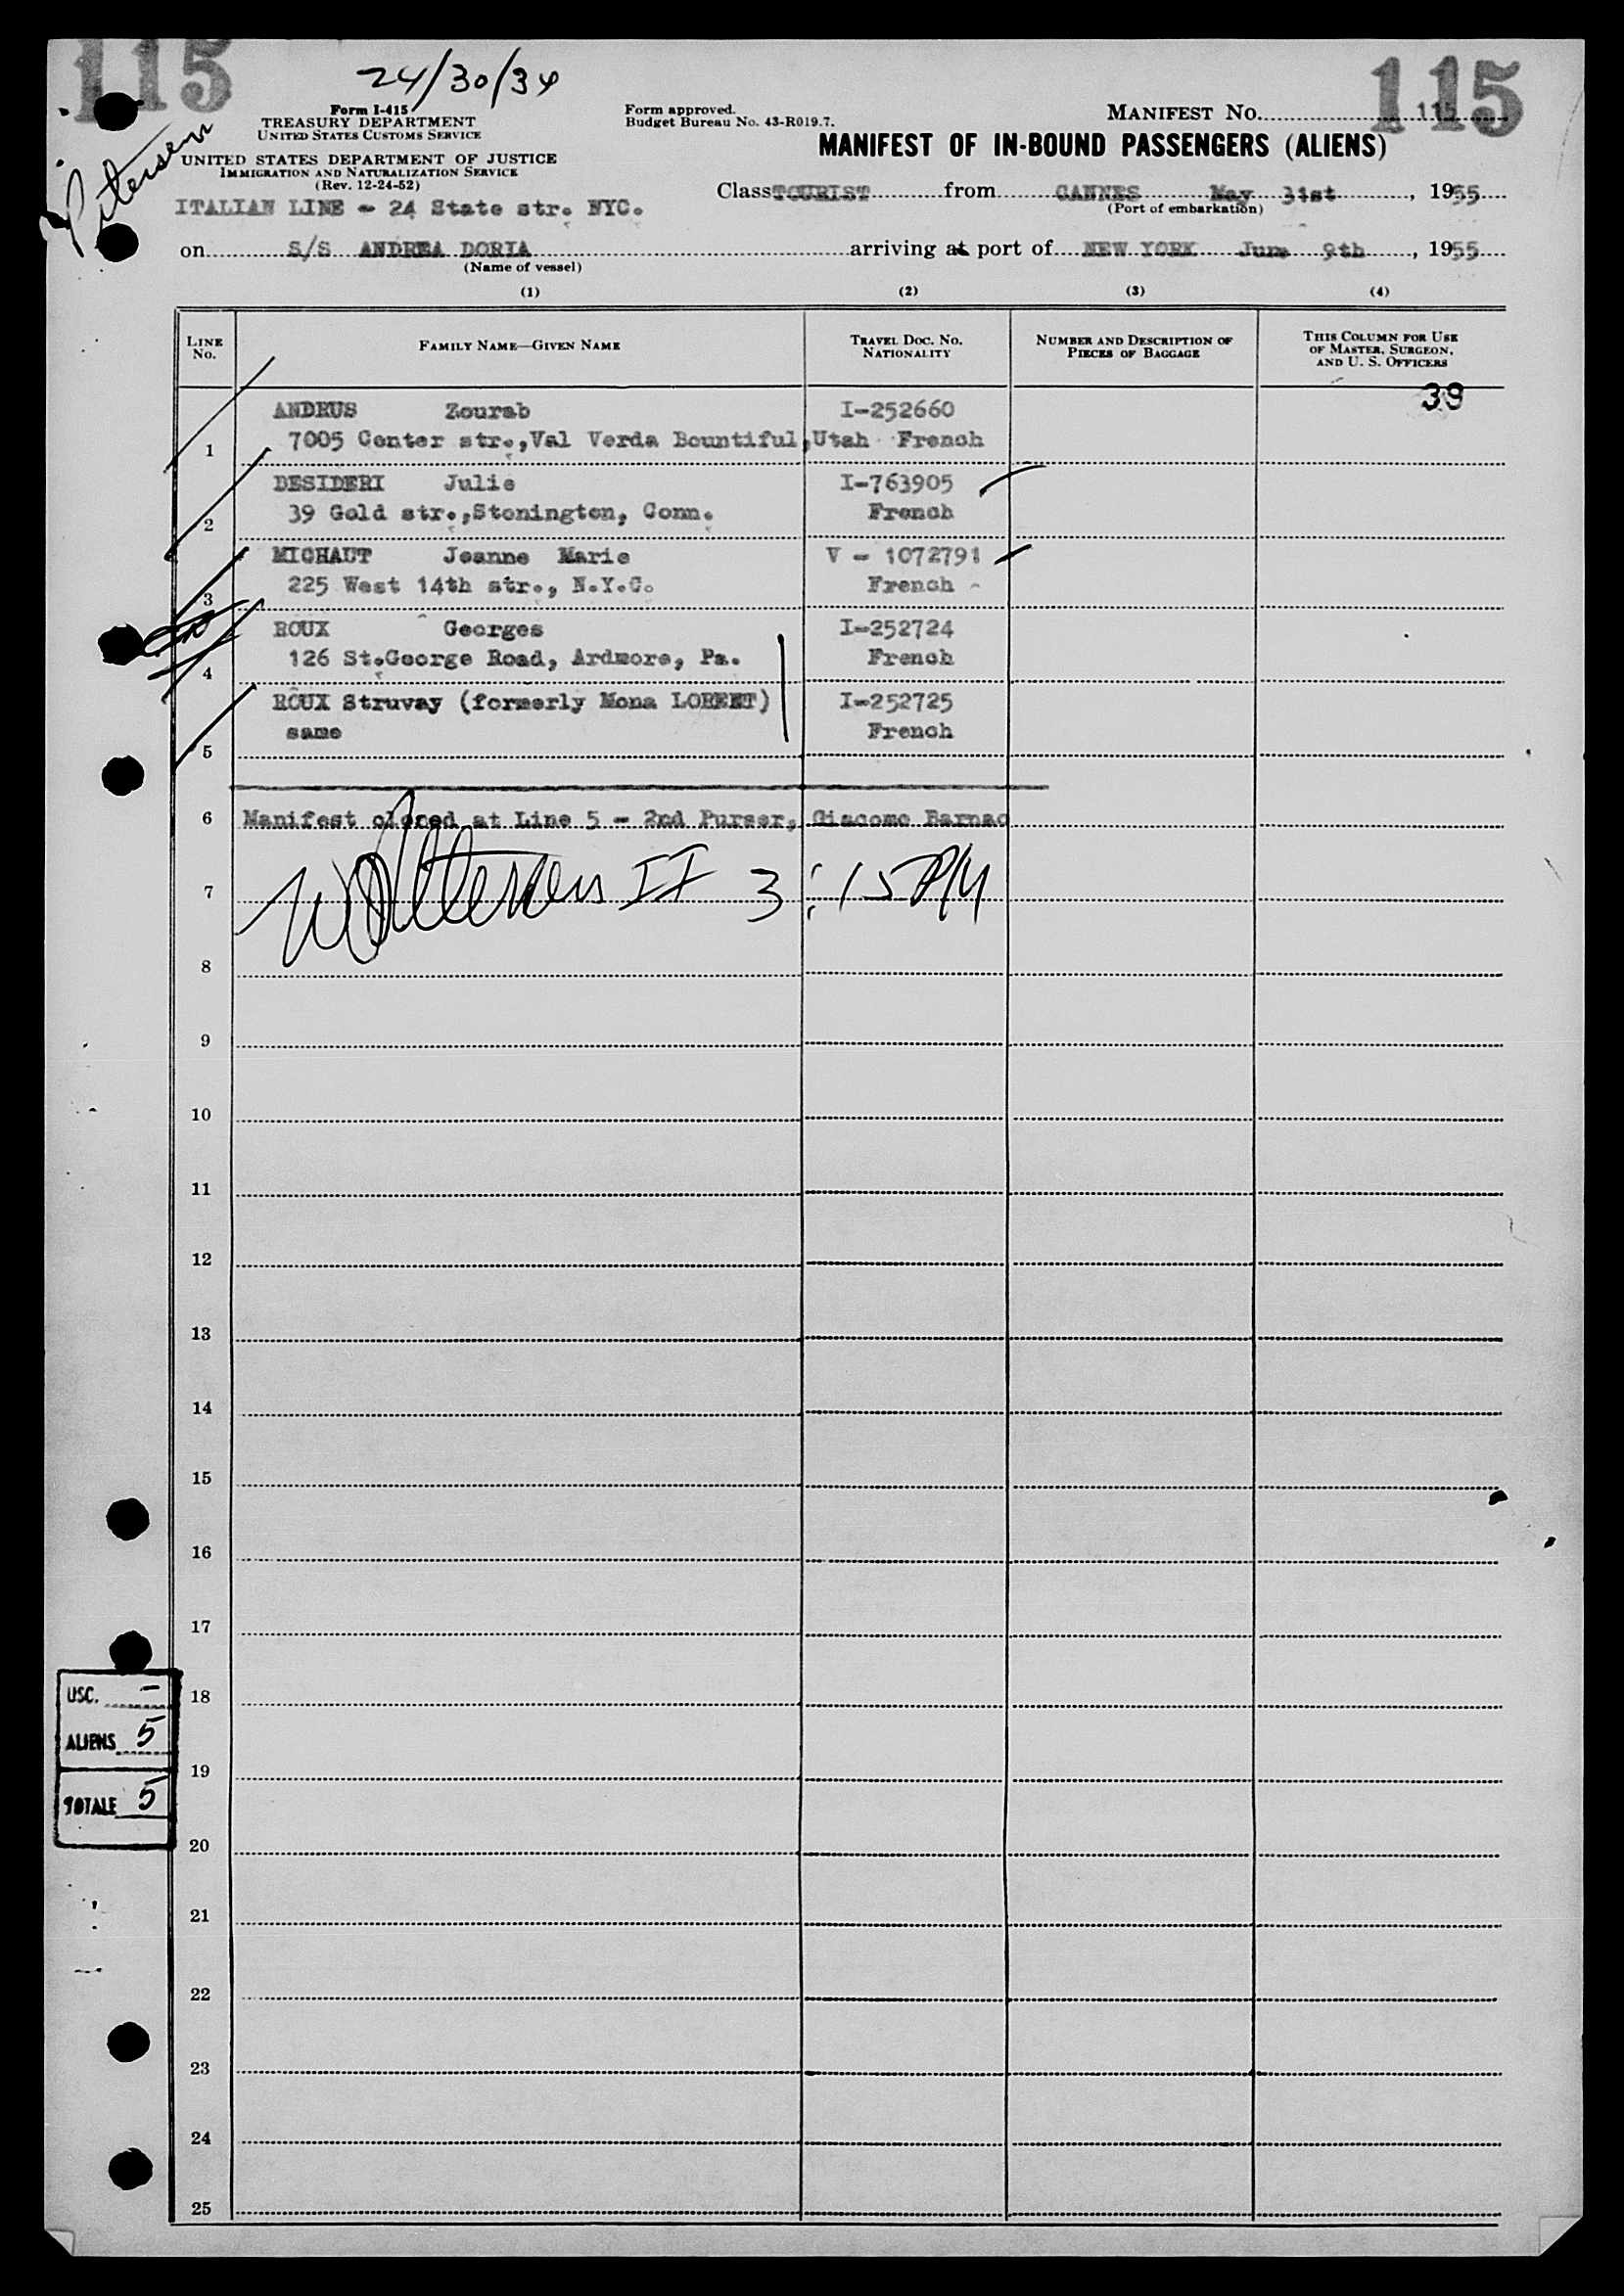 115
115
24/30/34
Petersen
Form I-415
TREASURY DEPARTMENT
UNITED STATES CUSTOMS SERVICE
Form approved.
Budget Bureau No. 43-R019.7.
MANIFEST NO. 115
UNITED STATES DEPARTMENT OF JUSTICE
IMMIGRATION AND NATURALIZATION SERVICE
(Rev. 12-24-52)
MANIFEST OF IN-BOUND PASSENGERS (ALIENS)
ITALIAN LINE - 24 State str. NYC.
Class TOURIST from CANNES May 31st, 1955
(Port of embarkation)
on S/S ANDREA DORIA arriving at port of NEW YORK June 9th, 1955
(Name of vessel)
(1) (2) (3) (4)
LINE NO.
FAMILY NAME—GIVEN NAME
TRAVEL DOC. NO.
NATIONALITY
NUMBER AND DESCRIPTION OF
PIECES OF BAGGAGE
THIS COLUMN FOR USE
OF MASTER, SURGEON,
AND U. S. OFFICERS
39
ANDRUS Zourab I-252660
1 7005 Center str.,Val Verda Bountiful,Utah French
DESIDERI Julie I-763905
2 39 Gold str.,Stonington, Conn. French
MICHAUT Jeanne Marie V - 1072791
3 225 West 14th str., N.Y.C. French
ROUX Georges I-252724
4 126 St.George Road, Ardmore, Pa. French
ROUX Struvay (formerly Mona LORENT) I-252725
5 same French
6 Manifest closed at Line 5 - 2nd Purser, Giacomo Barnao
7 II 3:15 PM
8
9
10
11
12
13
14
15
16
17
18
19
20
21
22
23
24
25
USC. -
ALIENS 5
TOTALE 5